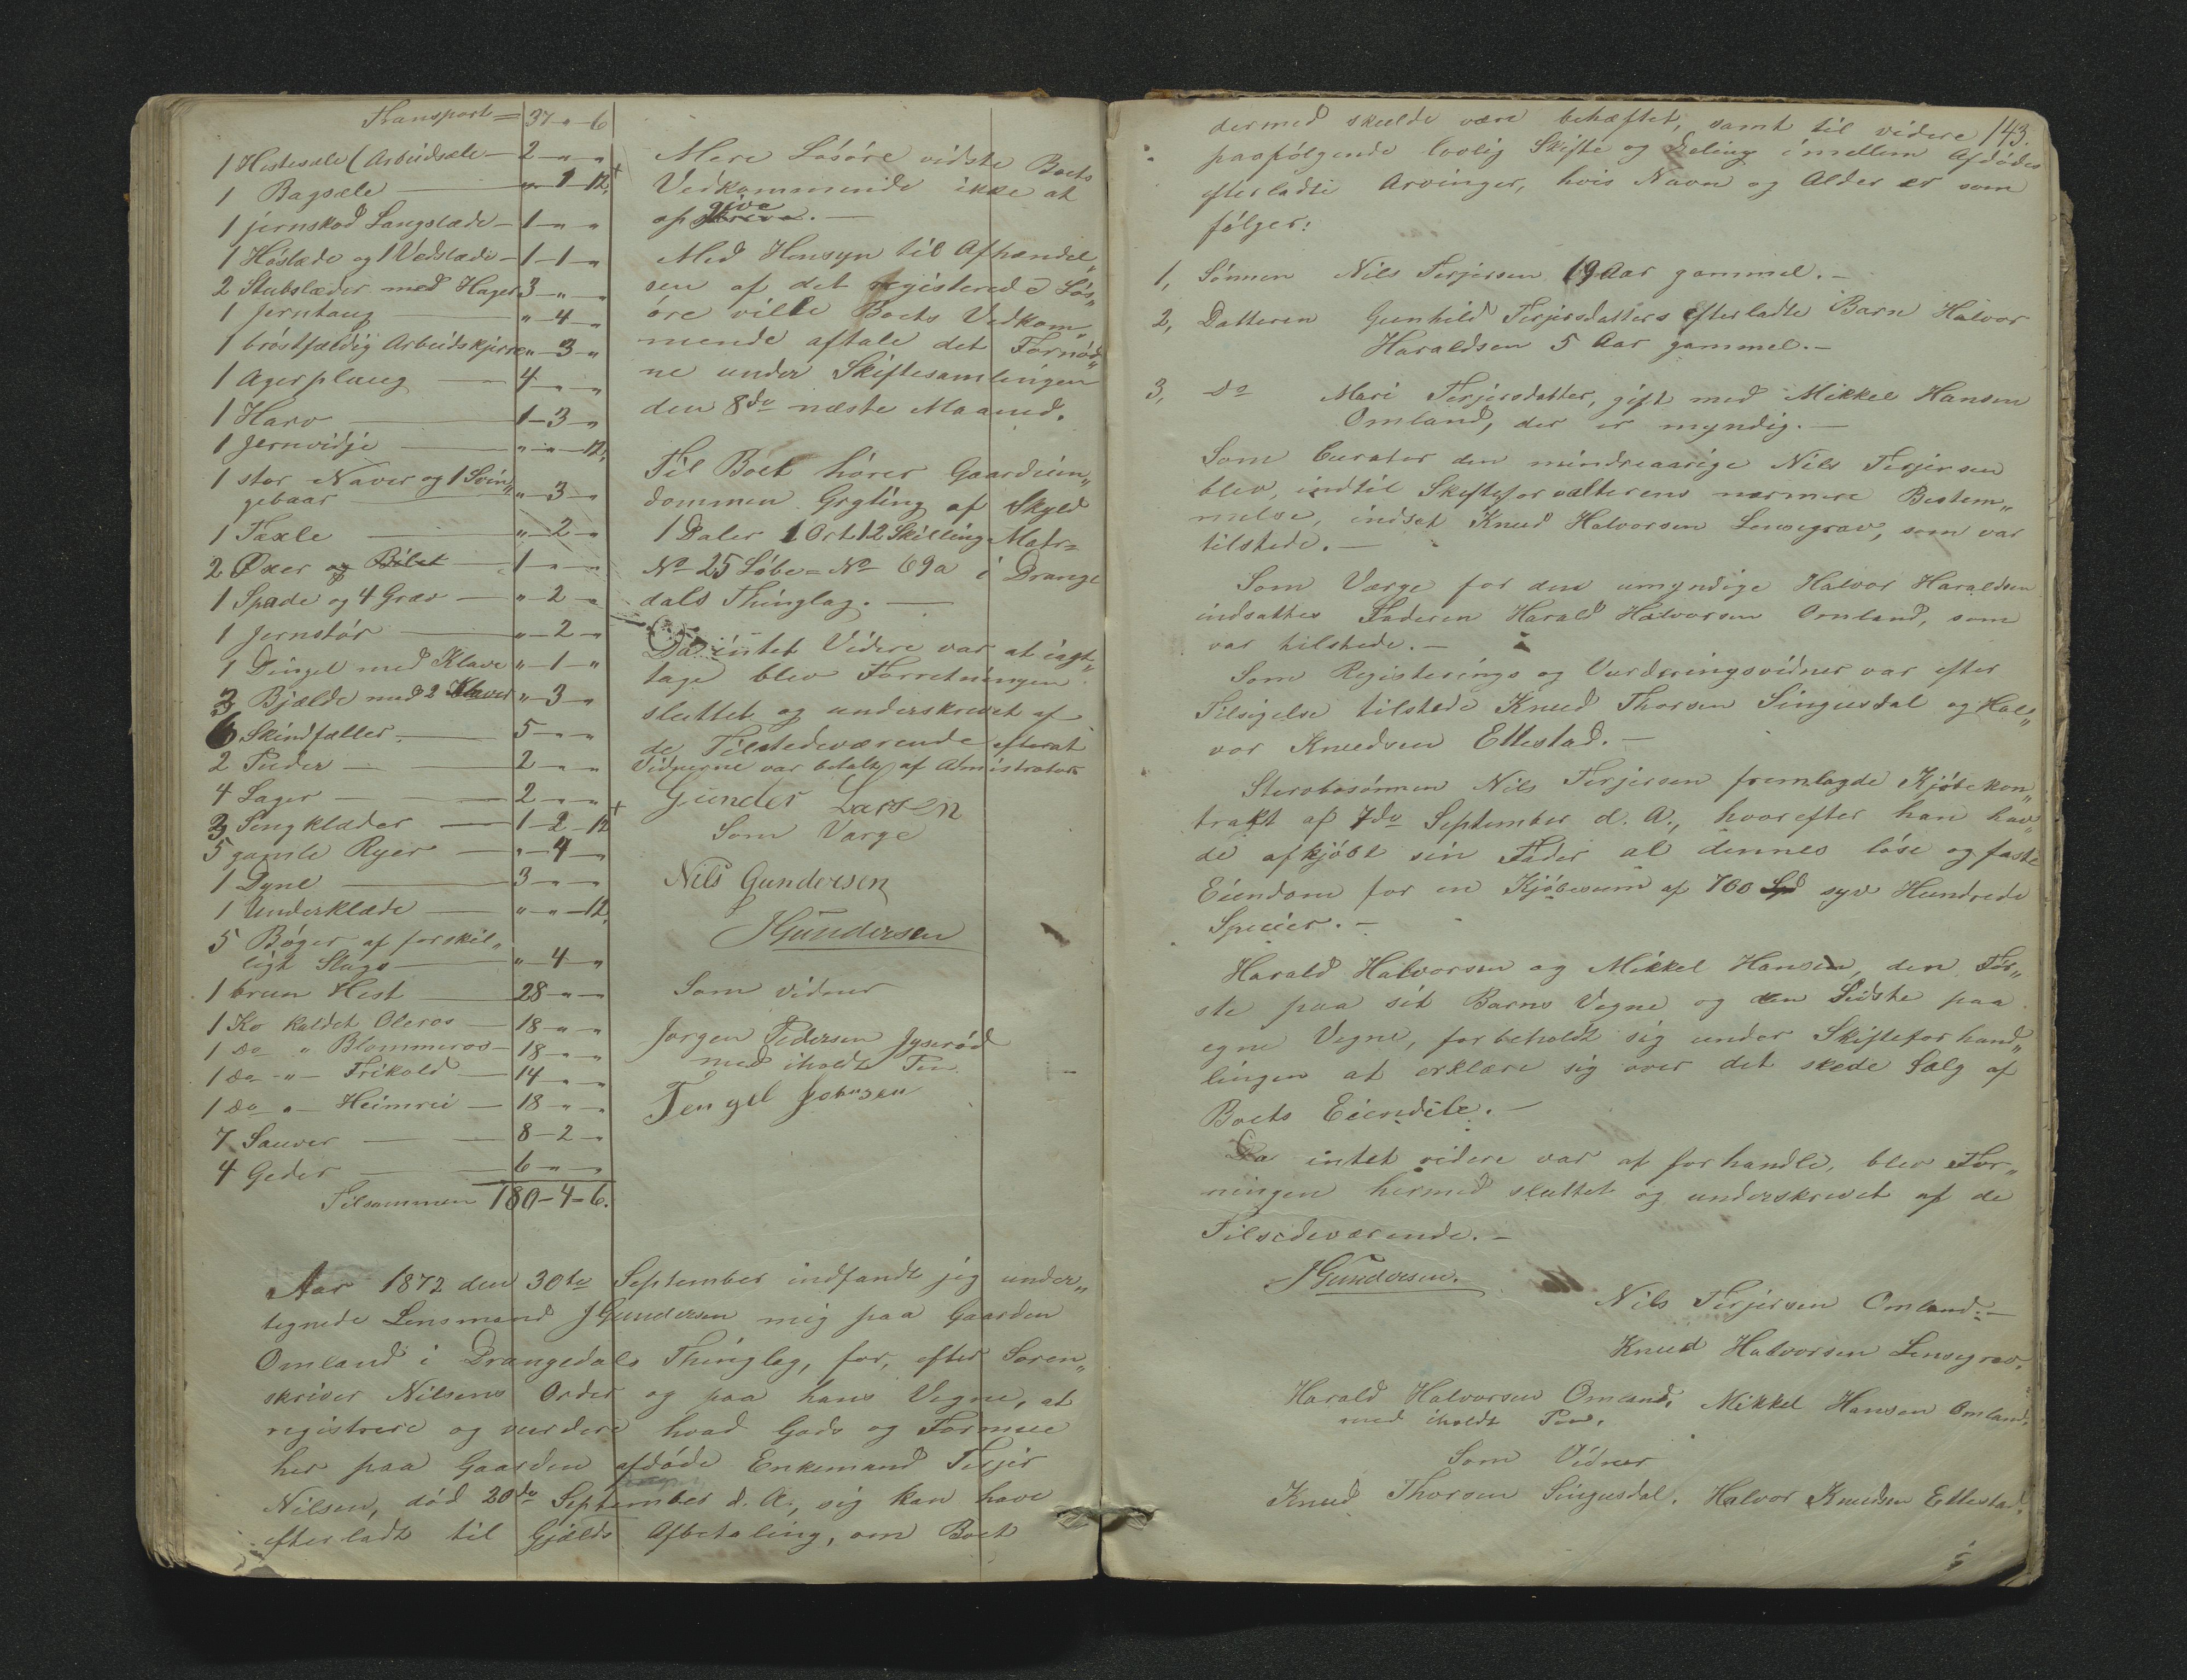 Transport = 37 - " - 6
1 Hestesæle (Arbeidsæle - 2 - " - "
1 Bagsæle - " - 1 - 12
1 jernskod Langslæde - 1 - " - "
1 Høslæde og 1 Vedslæde - 1 - 1 - "
2 Stubslæder med Hager 3 - " - "
1 Jerntaug - " - 4 - "
1 brøstfældig Arbeidskjerre " - 3 - "
1 Agerplaug - 4 - " - "
1 Harv - 1 - 3 - "
1 Jernvidje - " - " - 12
1 stor Naver og 1 Svin„
gebaar - " - 3 - "
1 Taxle - " - 2 - "
2 Øxer og Bilet - 1 - " - "
1 Spade og 4 Græv - " - 2 - "
1 Jernstør - " - 2 - "
1 Dingel med Klave " - 1 - "
3 Bjælde med 2 Klaver " - 3 - "
6 Skindfæller - 5 - " - "
2 Puder - 2 - " - "
4 Lager - 2 - " - "
3 Sengklæder - 1 - 2 - 12
5 gamle Ryer - " - 4 - "
1 Dyne - 3 - " - "
1 Underklæde - " - " - 12
5 Bøger af forskjel„
ligt Slags - " - 4 - "
1 brun Hest - 28 - " - "
1 Ko kaldet Oleros - 18 - " - "
1 do " Blommeros - 18 - " - "
1 do - " - Frikold - 14 - " - "
1 do " - Heimrei - 18 - " - "
7 Sauver - 8 - 2 - "
4 Geder - 6 - " - "
Tilsammen 180 - 4 - 6.
Mere Løsøre vidste Boets
Vedkommende ikke at
opgive. -
Med Hensyn til Afhændel„
sen af det registerede Løs„
øre ville Boets Vedkom„
mende aftale det Fornød„
ne under Skiftesamlingen
den 8de næste Maaned.
Til Boet hører Gaardeien„
dommen Grgting af Skyld
1 Daler 1 Ort 12 Skilling Matr=
No 25 Løbe=No 69a i Drange
dals Thinglag. -
Da intet Videre var at iagt„
tage blev Forretningen
sluttet og underskrevet af
de Tilstedeværende efterat
Vidnerne var betalt af Admistrator
Gunder Larsen
Som Værge
Nils Gundersen
JGundersen
Som vidner
Jørgen Pedersen Jyserød
med iholdt Pen
Tengel Johnsen
Aar 1872 den 30te September indfandt jeg under„
tegnede Lensmand JGundersen mig paa Gaarden
Omland i Drangedals Thinglag, for, efter Soren„
skriver Nilsens Order og paa hans Vegne, at
registrere og vurdere hvad Gods og Formue
her paa Gaarden afdøde Enkemand Terjer
Nilsen, død 20de September d. A., sig kan have
efterladt til Gjælds Afbetaling, om Boet
143.
dermed skulde være behæftet, samt til videre
paafølgende lovlig Skifte og Deling imellem Afdødes
efterladte Arvinger, hvis Navn og Alder er som
følger:
1, Sønnen Nils Terjersen 19 Aar gammel. -
2, Datteren Gunhild Terjersdatters efterladte Barn Halvor
Haraldsen 5 Aar gammel. -
3, do Mari Terjersdatter, gift med Mikkel Hansen
Omland, der er myndig. -
Som Curator den mindreaarige Nils Terjersen
blev, indtil Skifteforvalterens nærmere Bestem„
melse, indsat Knud Halvorsen Lensegrav, som var
tilstede. -
Som Værge for den umyndige Halvor Haraldsen
indsattes Faderen Harald Halvorsen Omland, som
var tilstede. -
Som Registerings og Vurderingsvidner var efter
Tilsigelse tilstede Knud Thorsen Singusdal og Hal„
vor Knudsen Ettestad. -
Stervbosønnen Nils Terjersen fremlagde Kjøbekon„
trakt af 7de September d. A., hvorefter han hav„
de afkjøbt sin Fader al dennes løse og faste
Eiendom for en Kjøbesum af 700 Spd syv Hundrede
Specier. -
Harald Halvorsen og Mikkel Hansen, den Før„
ste paa sit Barns Vegne og den Sidste paa
egne Vegne, forbeholdt sig under Skifteforhand„
lingen at erklære sig over det skede Salg af
Boets Eiendele. -
Da intet videre var at forhandle, blev For„
ningen hermed sluttet og underskrevet af de
Tilsedeværende. -
JGundersen.
Nils Terjersen Omland. -
Knud Halvorsen Lensegrav.
Harald Halvorsen Omland, Mikkel Hansen Omland.
med iholdt Pen.
Som Vidner
Knud Thorsen Singusdal. Halvor Knudsen Ettestad.